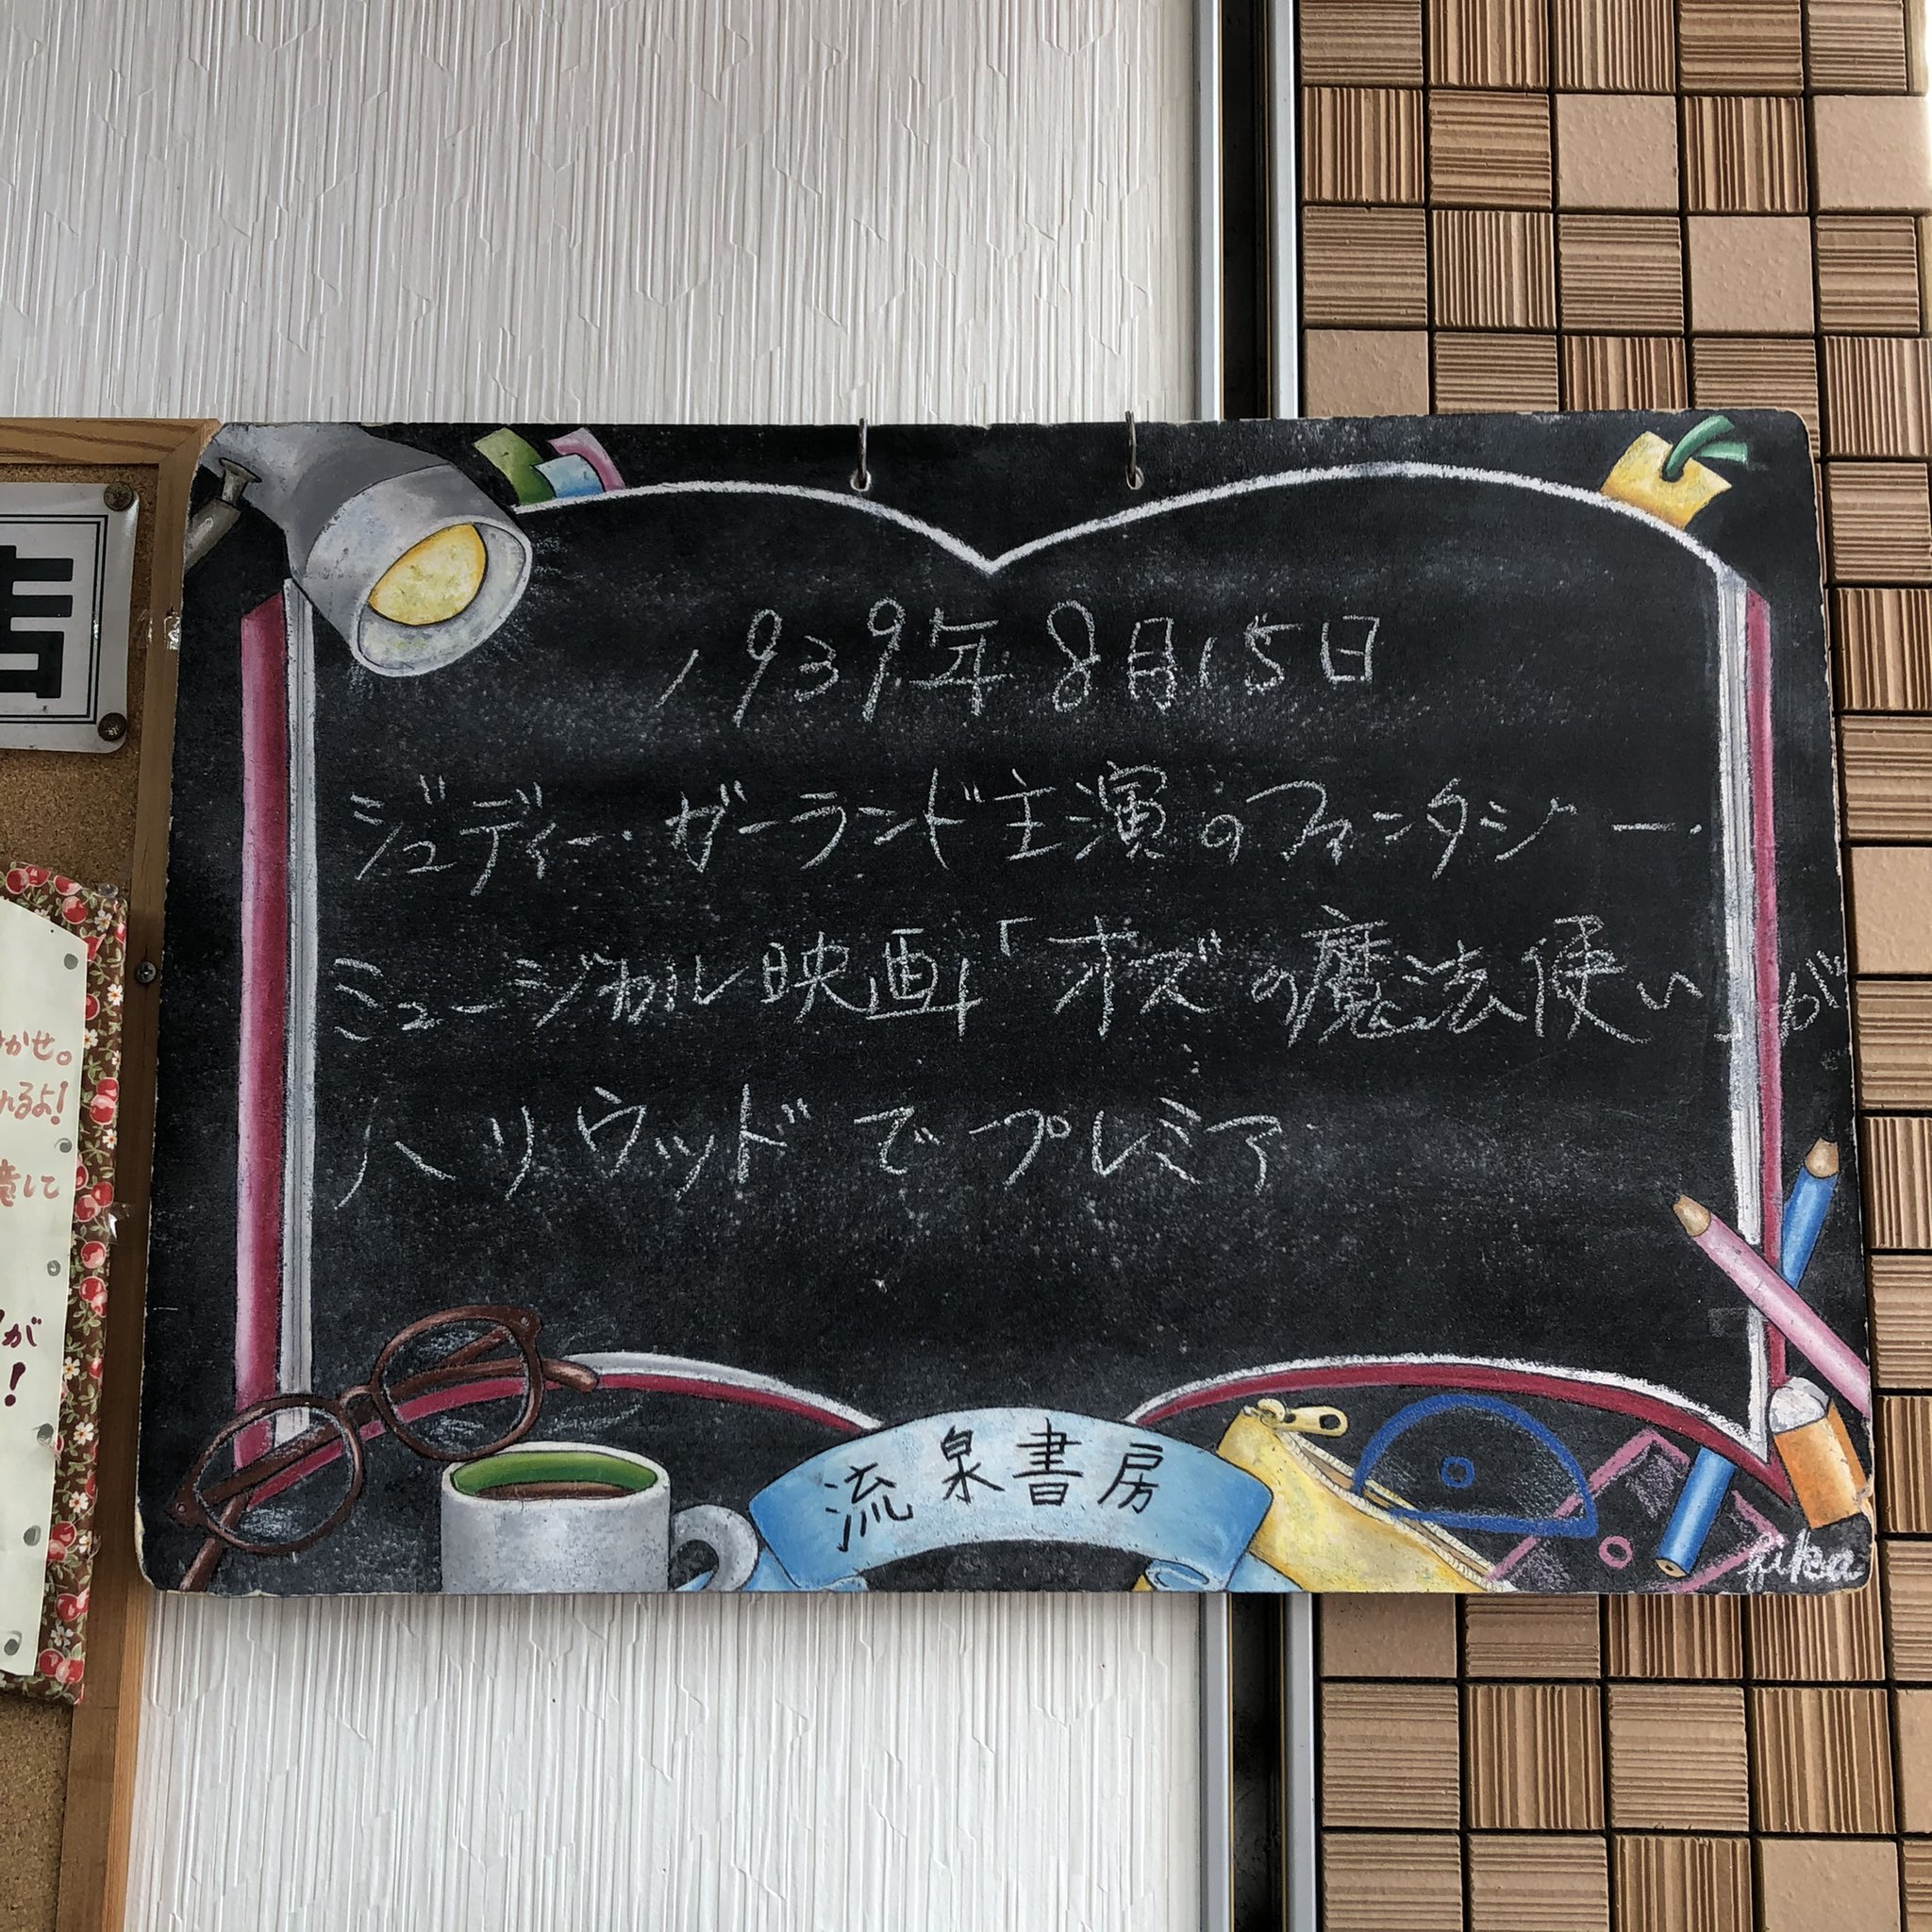 1939年8月15日
ジュディー・ガーランド主演のファンタジー・
ミュージカル映画「オズの魔法使い」が
ハリウッドでプレミア
流泉書房
fuka
かせ。
れるよ!
して
が
!